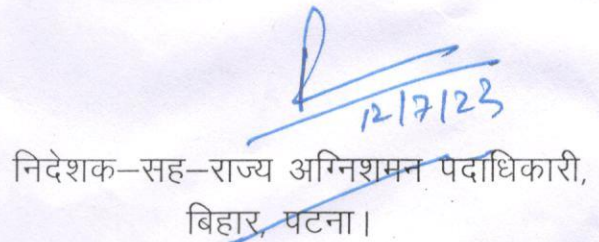 12/7/23
निदेशक–सह–राज्य अग्निशमन पदाधिकारी,
बिहार, पटना।